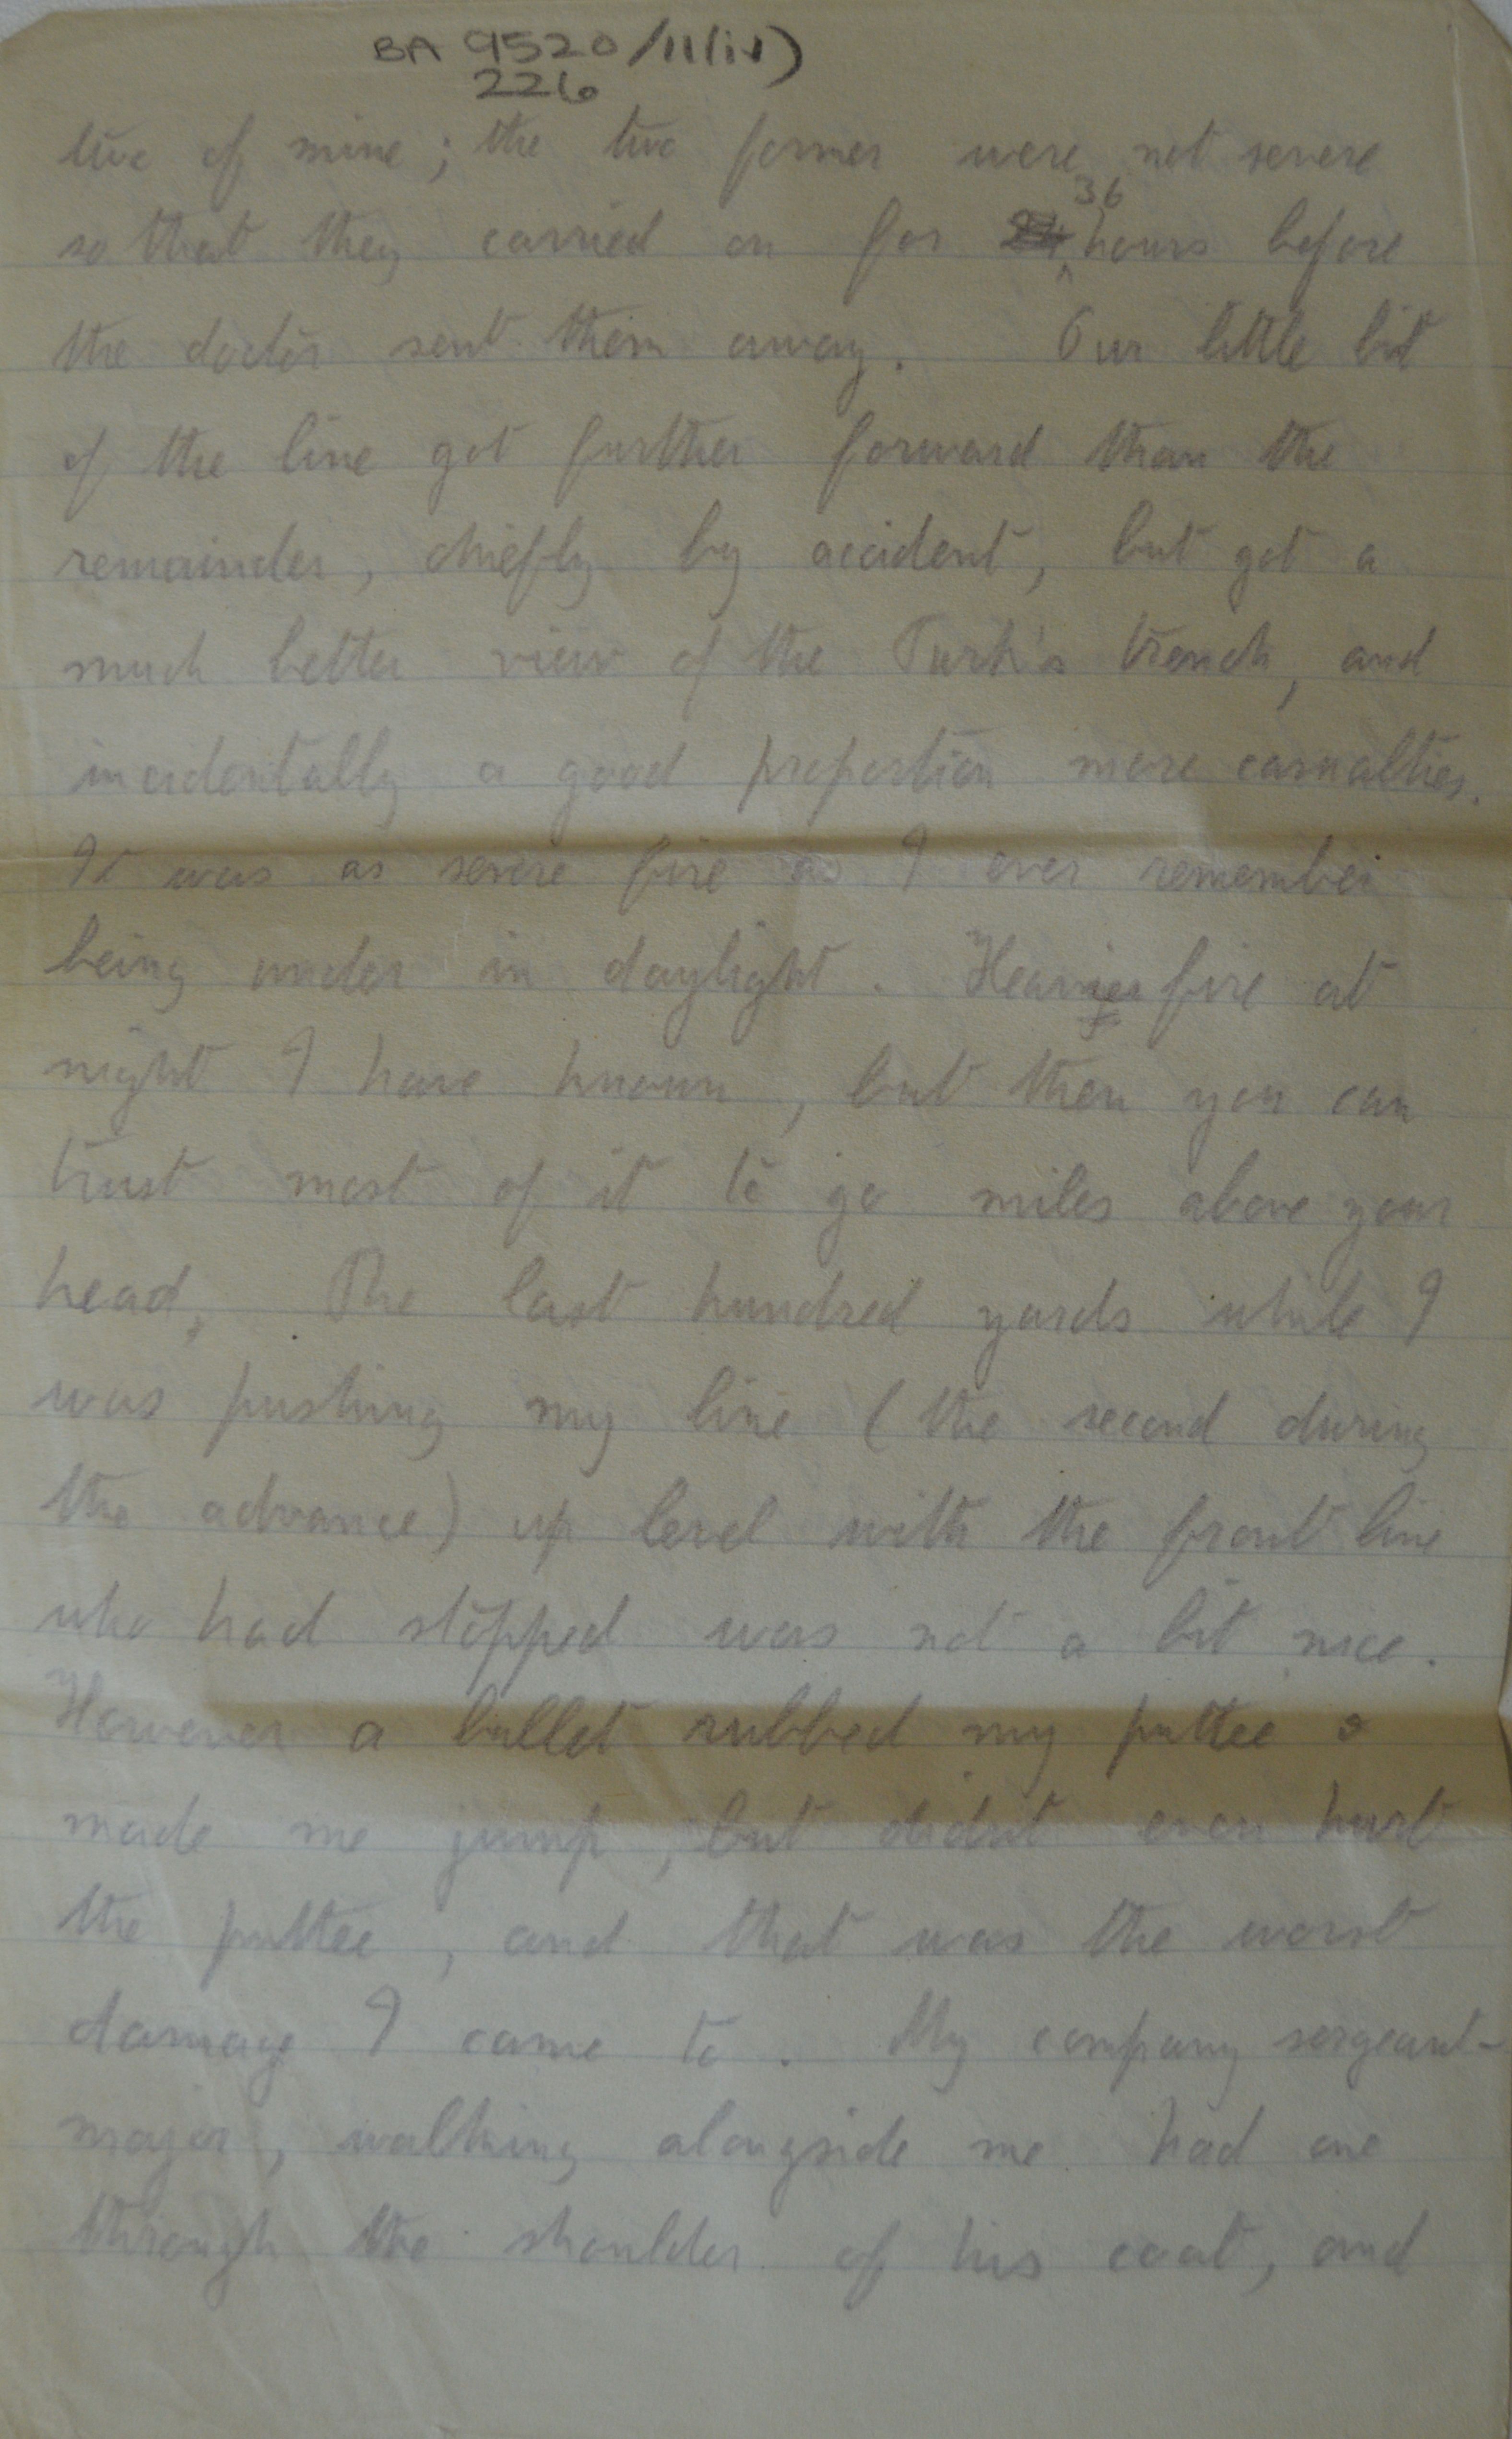 BA 9520/11(iv)
226
two of mine; the two former were not severe
so that they carried on for 24 36 hours before
the doctor sent them away. Our little bit
of the line got further forward than the
remainder, chiefly by accident, but got a
much better view of the Turk's trench, and
incidentally a good proportion more casualties.
It was as severe fire as I ever remember
being under in daylight. Heavier fire at
night I have known, but then you can
trust most of it to go miles above your
head. The last hundred yards while I
was pushing my line (the second during
the advance) up level with the front line
who had stopped was not a bit nice.
However a bullet rubbed my puttee &
made me jump, but didnt even hurt
the puttee, and that was the worst
damage I came to. My company sergeant-
major, walking alongside me had one
through the shoulder of his coat, and